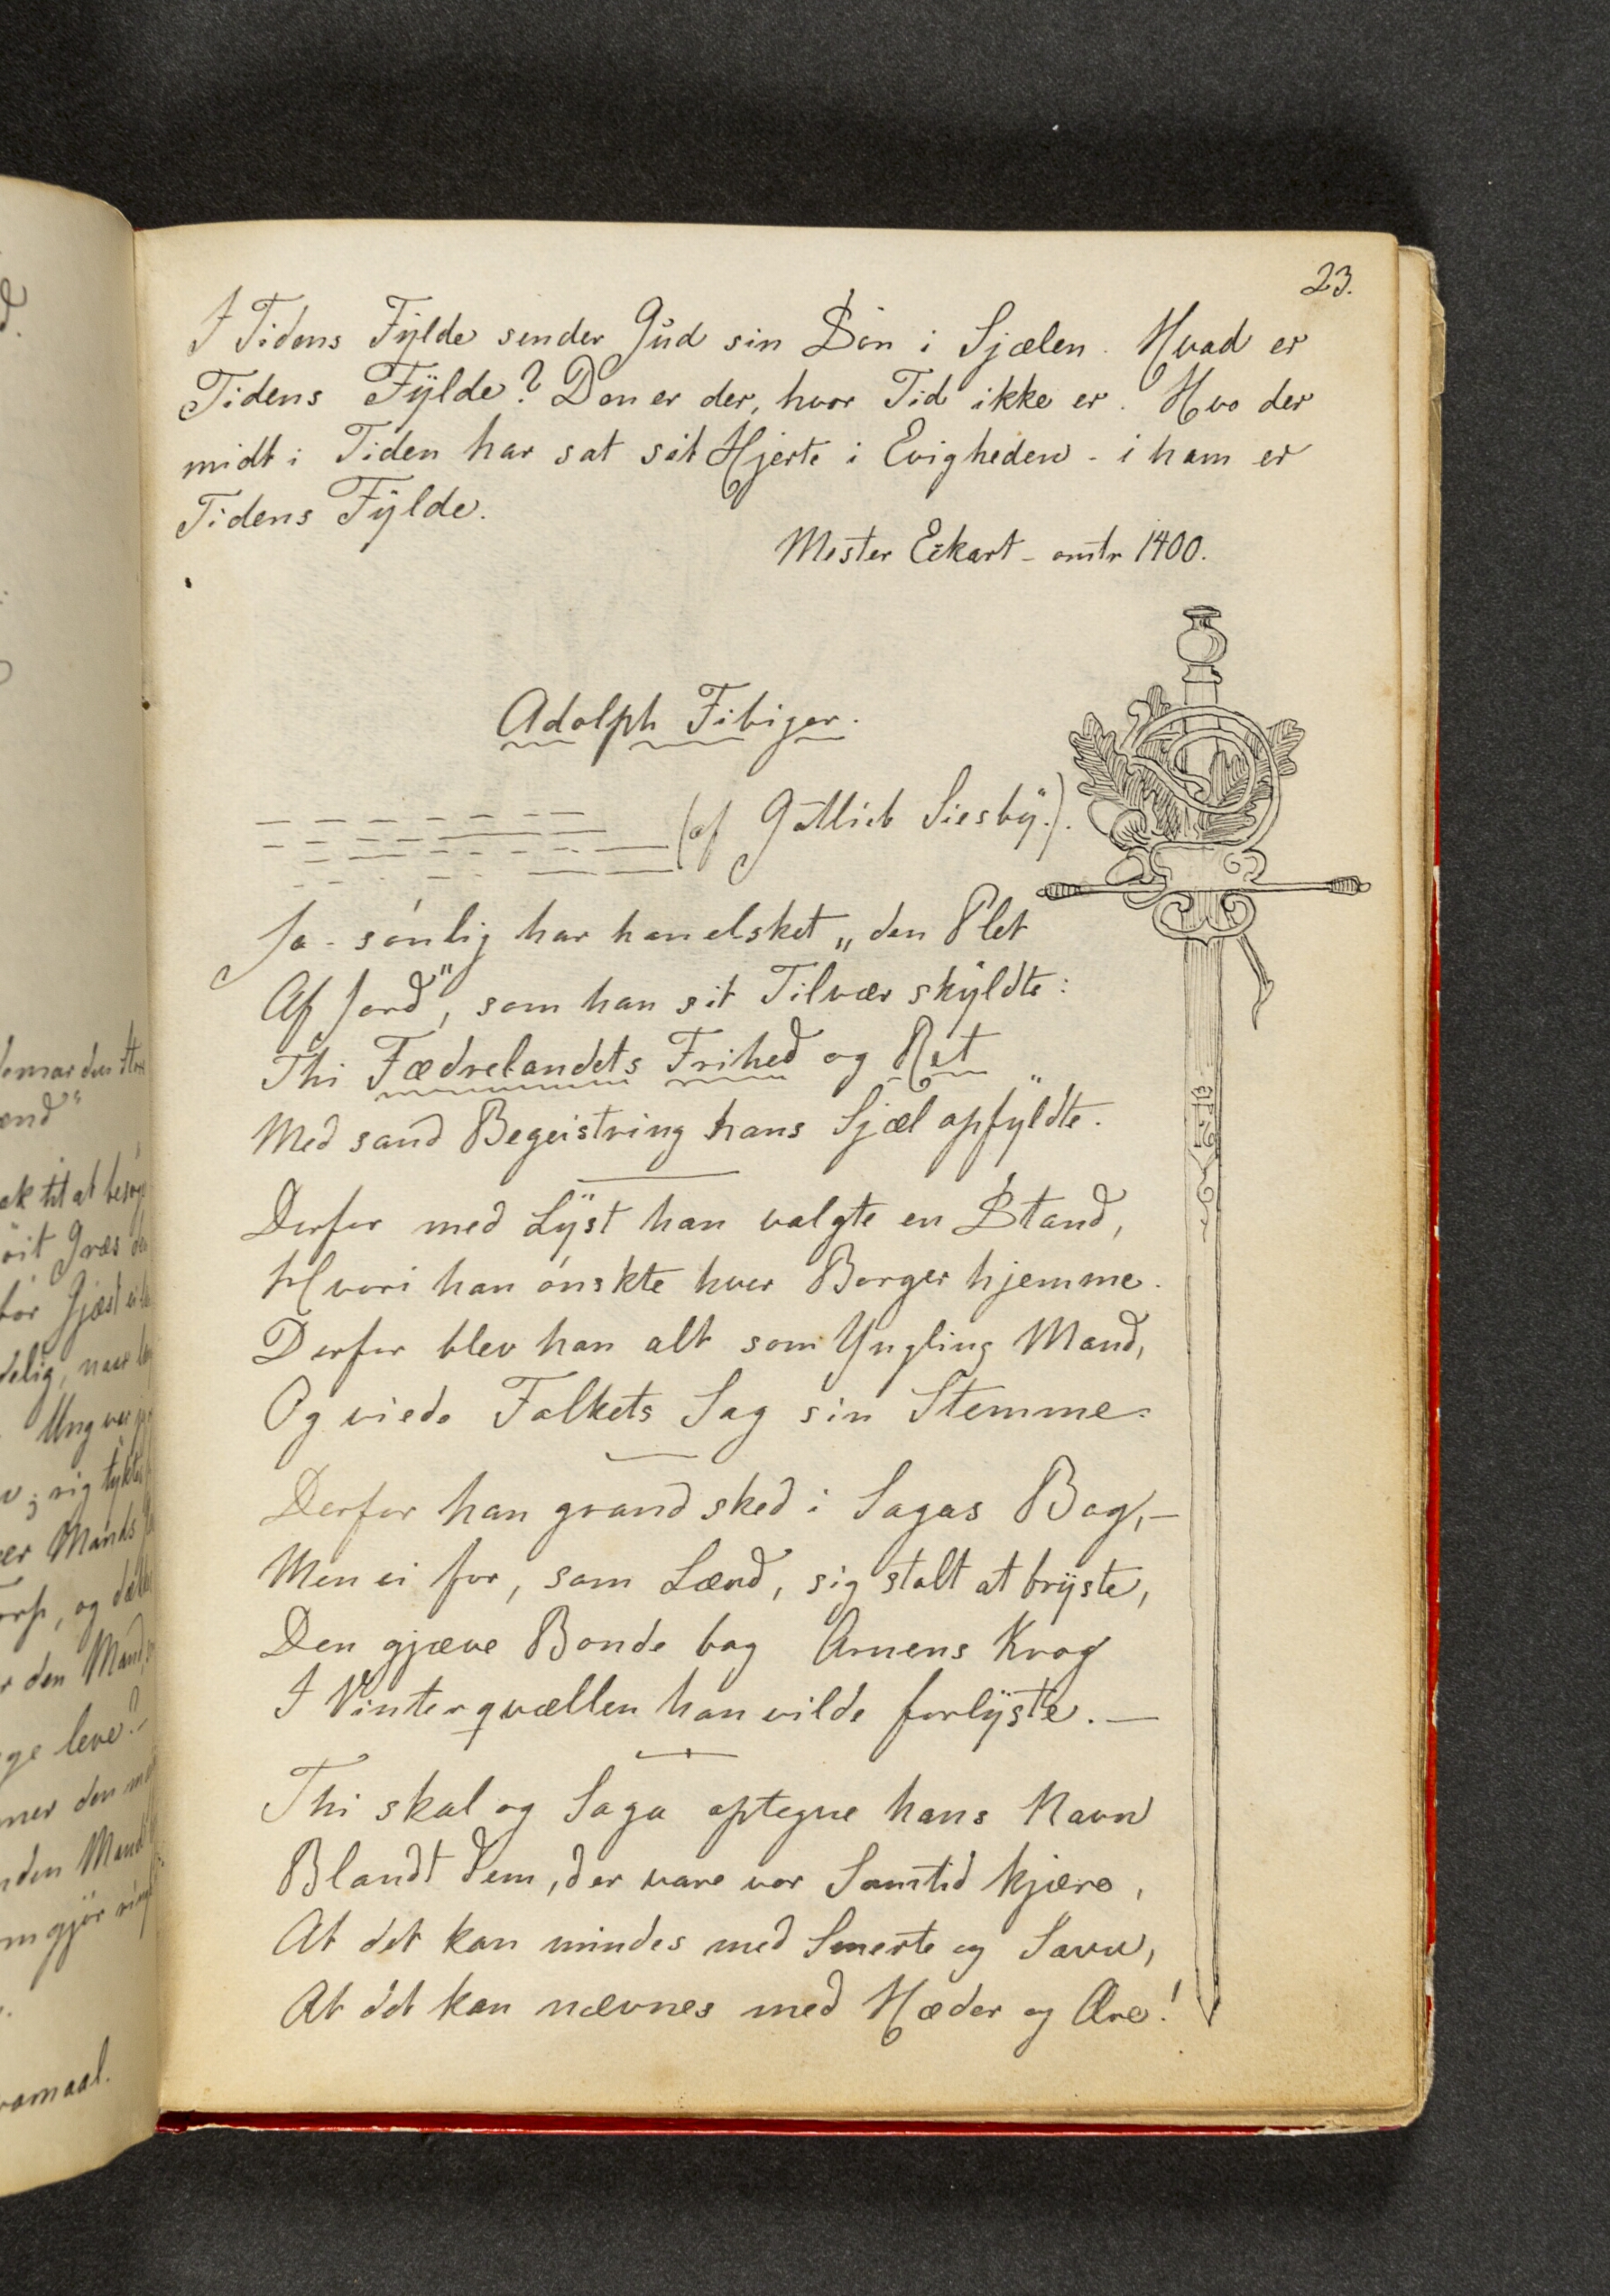 23.
I Tidens Fylde sender Gud sin Søn i Sjælen. Hvad er
Tidens Fylde? Den er der, hvor Tid ikke er. Hvo der
midt i Tiden har sat sit Hjerte i Evigheden - i ham er
Tidens Fylde.
Mester Eckart - omtr 1400.
Adolph Fibiger.
(af Gottlieb Siesby.).
Ja - sønlig har han elsket „den Plet
Af Jord", som han sit Tilvær skyldte:
Thi Fædrelandets Frihed og Ret
Med sand Begeistring hans Sjæl opfyldte.
Derfor med Lyst han valgte en Stand,
Hvori han ønskte hver Borger hjemme.
Derfor blev han alt som Yngling Mand,
Og viede Folkets Sag sin Stemme.
Derfor han grandsked i Sagas Bog, -
Men ei for, som Lærd, sig stolt at bryste,
Den gjæve Bonde bag Arnens Krog
I Vinterqvællen han vilde forlyste. -
Thi skal og Saga optegne hans Navn
Blandt Dem, der vare vor Samtid kjære,
At det kan mindes med Smerte og Savn,
At det kan nævnes med Hæder og Ære!
ænd"
øit Græs
delig, naar
Ung var
er Mands
og
den Mand
ge leve? -
mer den
den Mand
gjør